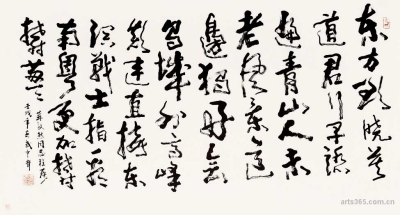 东方欲晓莫
道君行早踏
遍青山人未
老风景这
边独好会
昌城外高峰
颠连直接东
溟战士指看
南粤更加郁
郁葱々
同志
壬戌年 武中奇
arts365.com